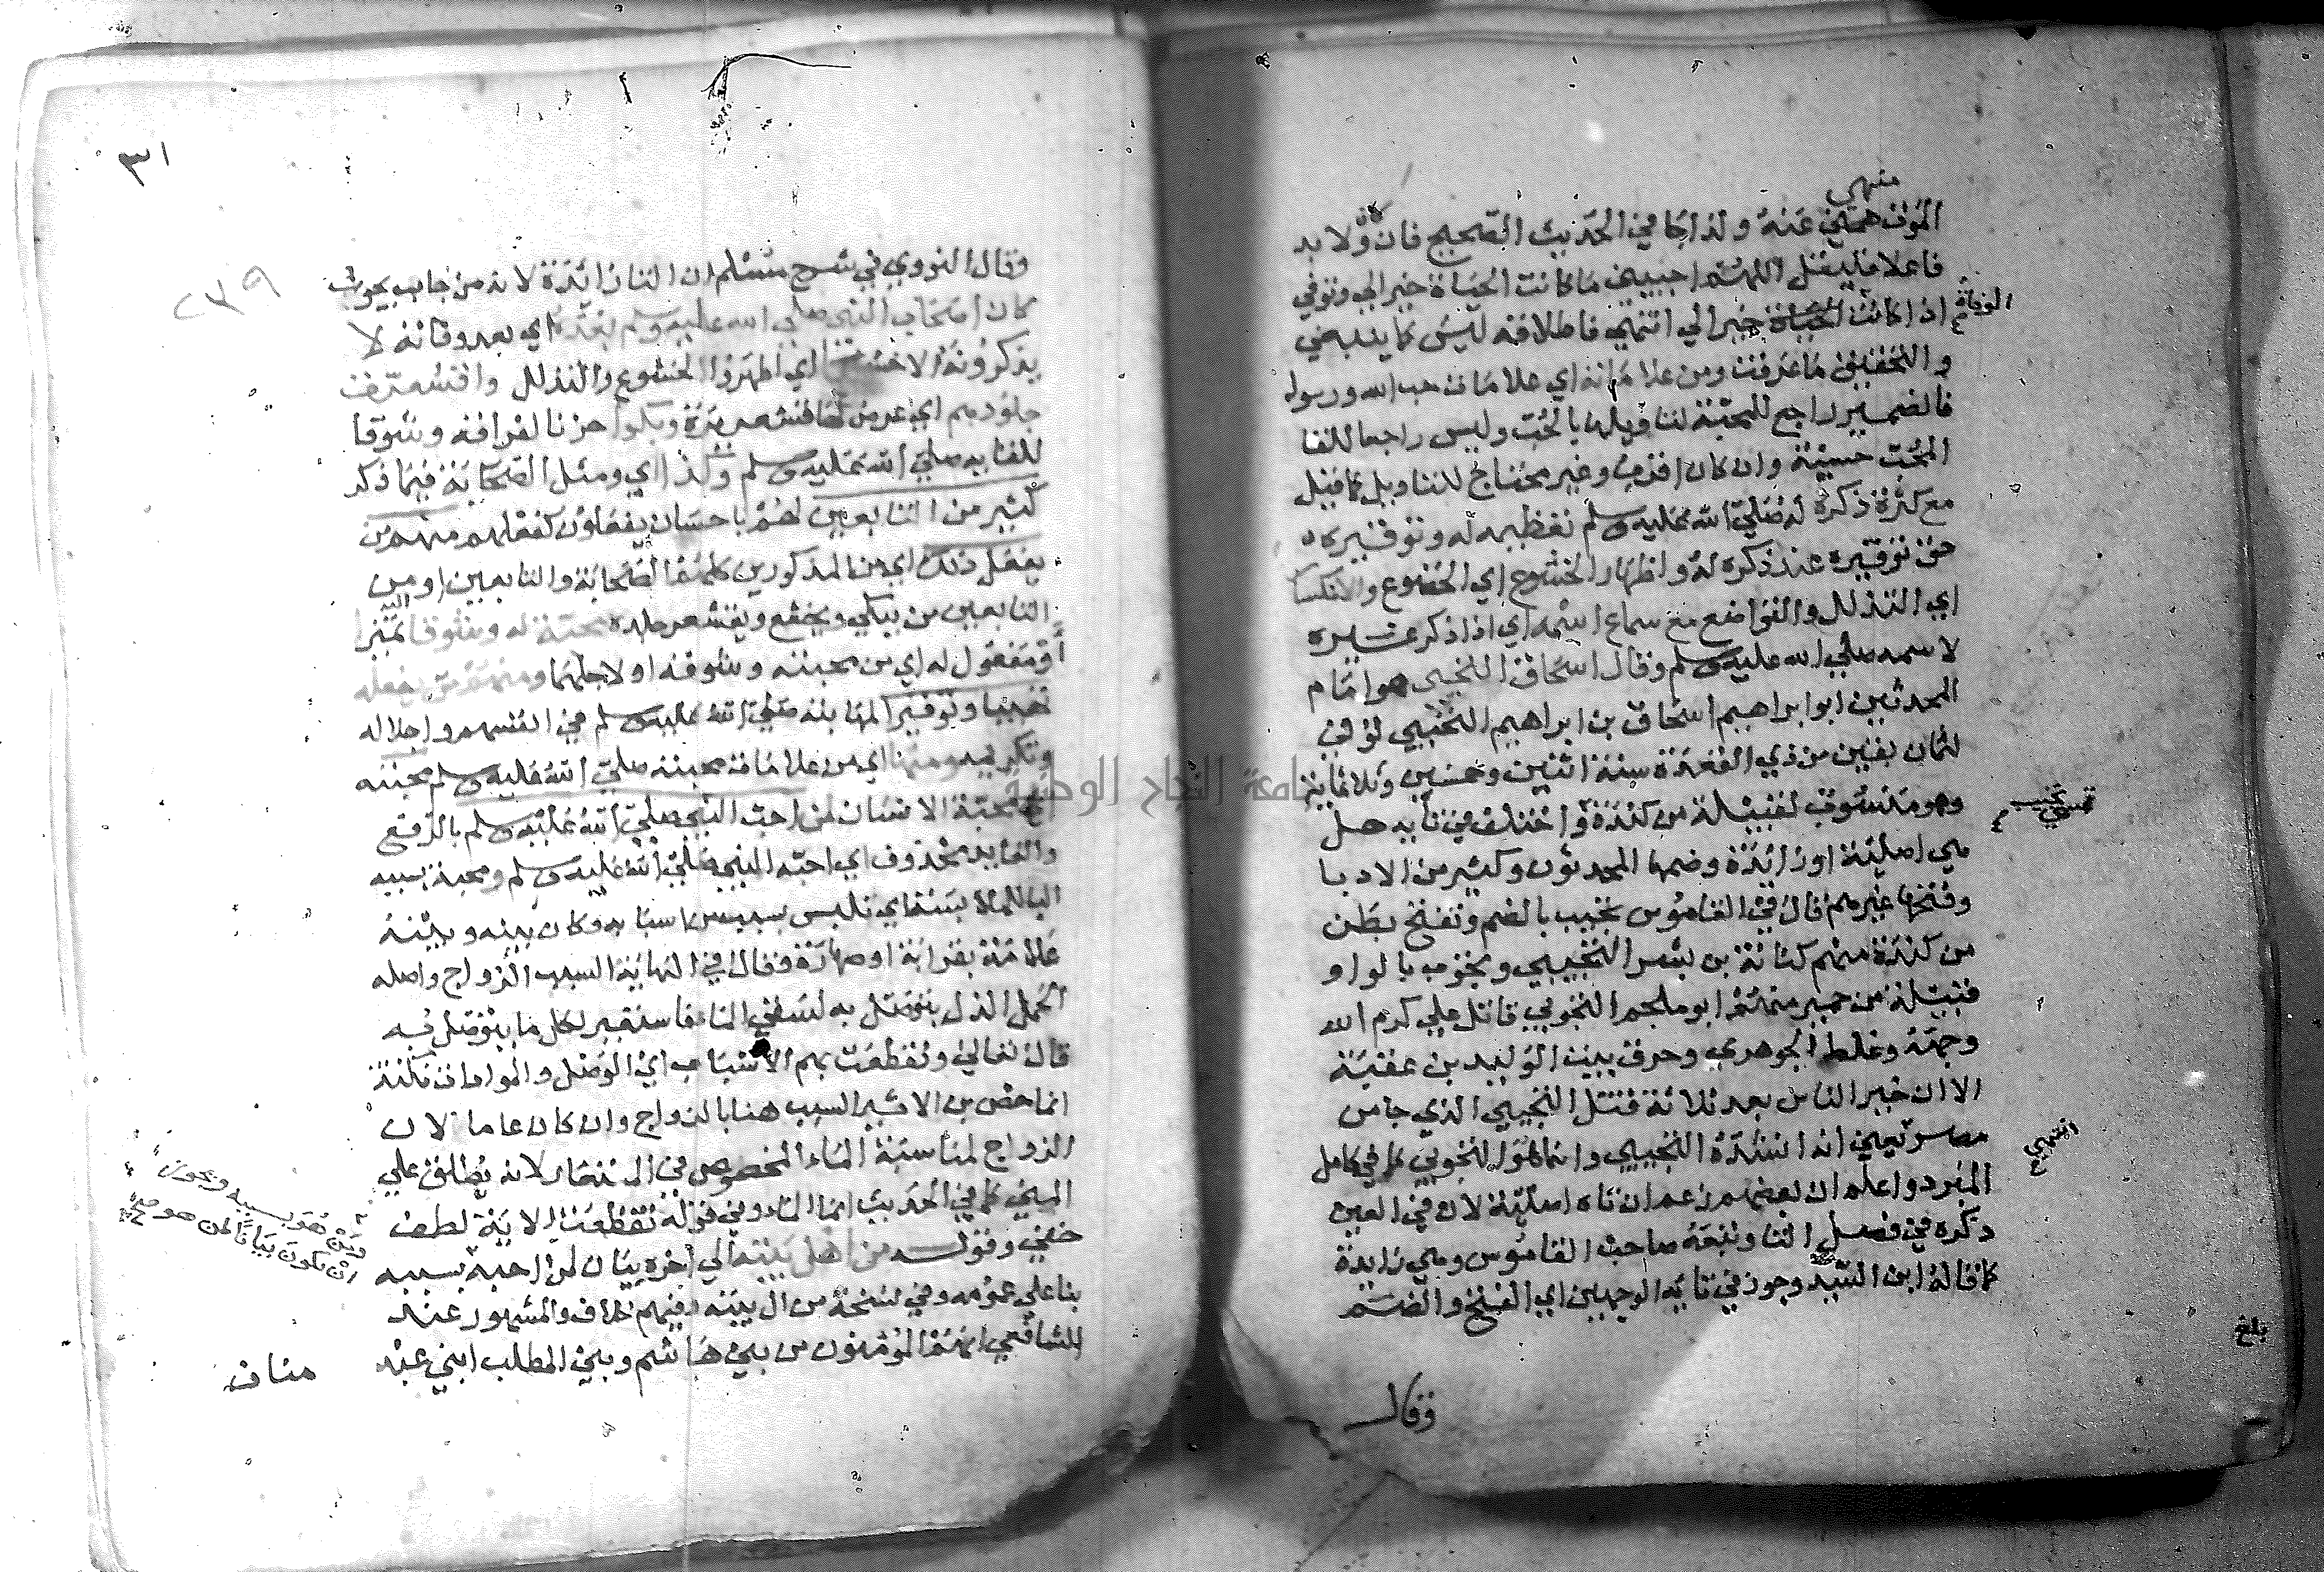 منهي
الموت همتي عنه ولذا جا في الحديث الصحيح فان ولا بد
فاعلا فليقل اللهم احييني ما كانت الحياة خيرا لي وتوفني
اذا كانت الحياة خيرا لي انتهي فاطلاقه ليس كما ينبغي
الوفاة
والتحقيق ما عرفت ومن علاماته اي علامات حب الله ورسوله
فالضمير راجع للمحبة لتاويلها بالحب وليس راجعا للقا
المحب حسيبه وان كان اقرب وغير محتاج للتاويل كما قيل
مع كثرة ذكره له صلي الله عليه وسلم تعظيمه له وتوقيره
حق توقيره عند ذكره له واظهار الخشوع اي الخضوع والانكسار
اي التذلل والتواضع مع سماع اسمه اي اذا ذكر غيره
لاسمه صلي الله عليه وسلم وقال اسحاق التجيبي هو امام
المحدثين ابو ابراهيم اسحاق بن ابراهيم التجيبي توفي
لثمان بقين من ذي القعدة سنة اثنين وخمسين وثلاثماية
وهو منسوب لقبيلة من كندة واختلف في تايه هل
هي اصلية او زائدة وضمها المحدثون وكثير من الادبا
وفتحها غيرهم قال في القاموس تجيب بالضم وتفتح بطن
من كندة منهم كنانة بن بشر التجيبي وتجوب بالواو
قبيلة من حمير منهم ابو ملجم التجوبي قاتل علي كرم الله
وجهه وغلط الجوهري وحرف بيت الوليد بن عقبة
الا ان خير الناس بعد ثلاثة قتيل التجيبي الذي جا من
مصر يعني انه انشده التجيبي وانما هو التجوبي كما في كامل
انتهي
المبرد واعلم ان بعضهم زعم ان تاه اصلية لان في العين
ذكره في فصل التا وتبعه صاحب القاموس وهي زايدة
كما قاله ابن السيد وجوز في تايه الوجهين اي الفتح والضم
بلغ
وقال
٣١
٢٣٩
وقال النووي في شرح مسلم ان التا زائدة لانه من جاب يجوب
كان اصحاب النبي صلي الله عليه وسلم بعده اي بعد وفاته لا
يذكرونه الا خشعوا اي اظهروا الخشوع والتذلل واقشعرت
جلودهم اي عرض لها قشعريرة وبكوا حزنا لفراقه وشوقا
للقايه صلي الله عليه وسلم وكذا اي ومثل الصحابة فيما ذكر
كثير من التابعين لهم باحسان يفعلون كفعلهم منهم من
يفعل ذلك اي من المذكورين كلهم الصحابة والتابعين او من
التابعين من يبكي ويخشع ويقشعر جلده محبة له وشوقا اليه تمييز
او مفعول له اي من محبته وشوقه او لاجلهما ومنهم من يفعله
تهيبا وتوقيرا لمهابته صلي الله عليه وسلم في انفسهم واجلاله
وتكريمه ومنها اي من علامات محبته صلي الله عليه وسلم محبته
اي محبة الانسان لمن احب النبي صلي الله عليه وسلم بالرفع
والعايد محذوف اي احبه النبي صلي الله عليه وسلم ومحبة بسببه
علاقة بقرابة او صهارة فقال في النهاية السبب الزواج واصله
الحمل الذي يتوصل به لسقي الماء فاستعير لكل ما يتوصل به
قال تعالي وتقطعت بهم الاسباب اي الوصل والمودات
انما خص بن الاثير السبب هنا بالزواج وان كان عاما لان
الزواج لمناسبة الماء المخصوص في المستعار لانه يطلق علي
المني كما في الحديث انما الماء وفي قوله تقطعت الاية لطف
خفي وقوله من اهل بيته الي اخره بيان لمن احبه بسببه
بنا علي عمومه وفي نسخة من ال بيته وفيهم خلاف والمشهور عند
الشافعي انهم المؤمنون من بني هاشم وبني المطلب ابني عبد
مناف